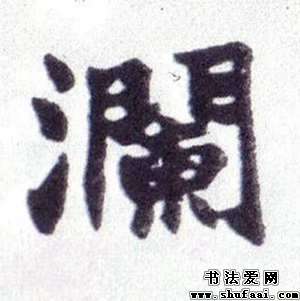 瀾
书法爱网
www.shufaai.com